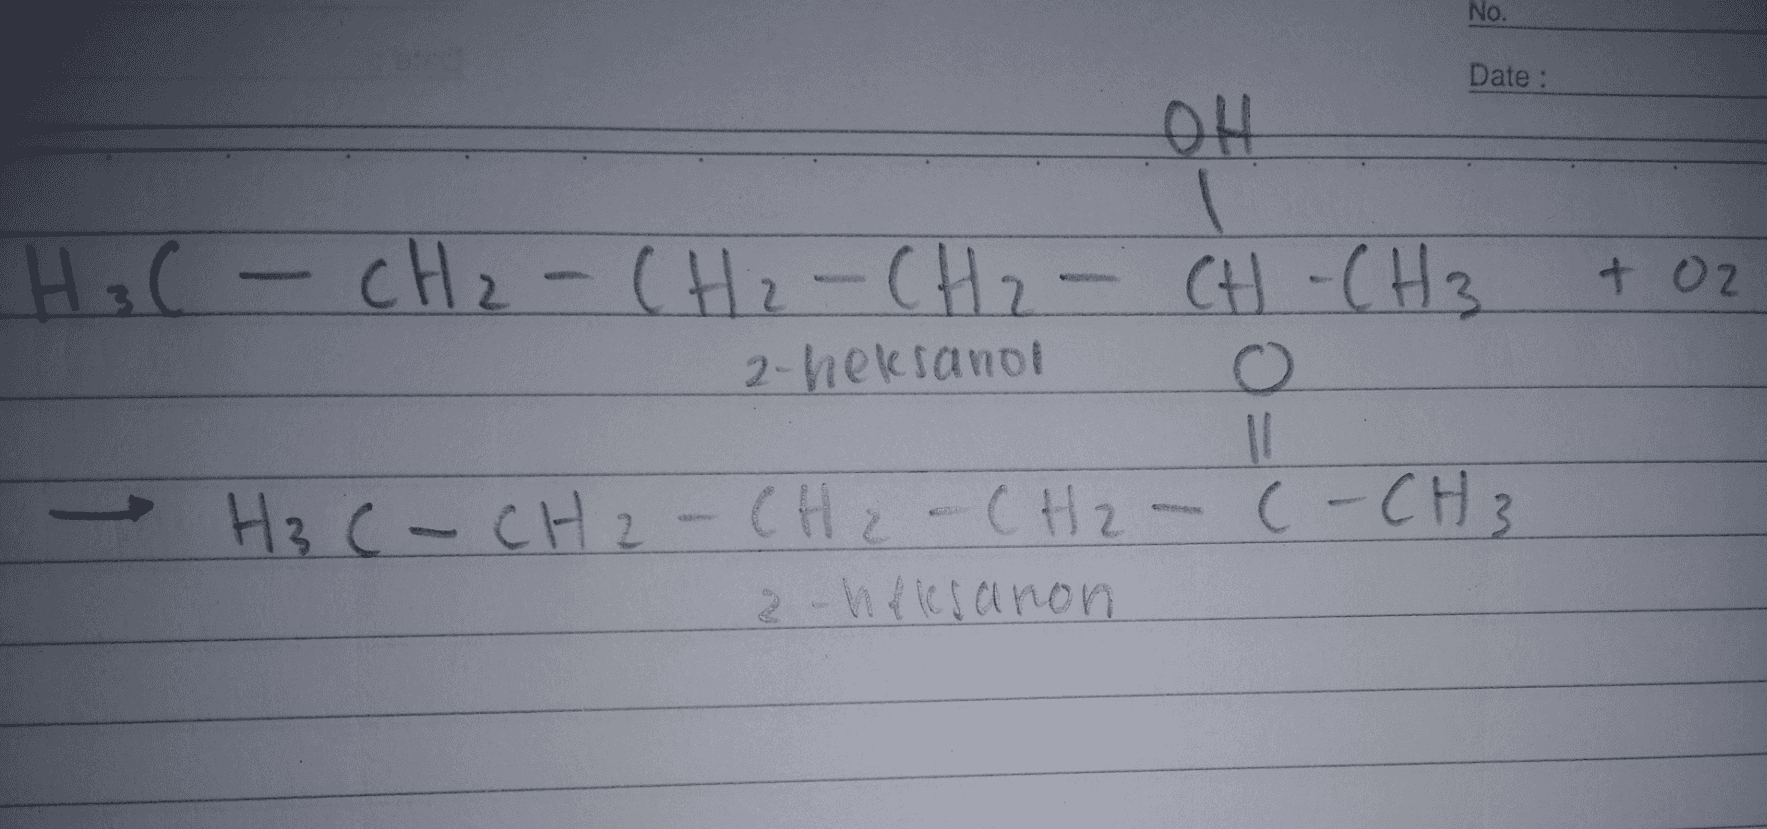 No.
Date :
OH
|
H3C - CH2 - CH2 - CH2 - CH - CH3 + O2
2-heksanol
O
||
→ H3C - CH2 - CH2 - CH2 - C - CH3
2-heksanon